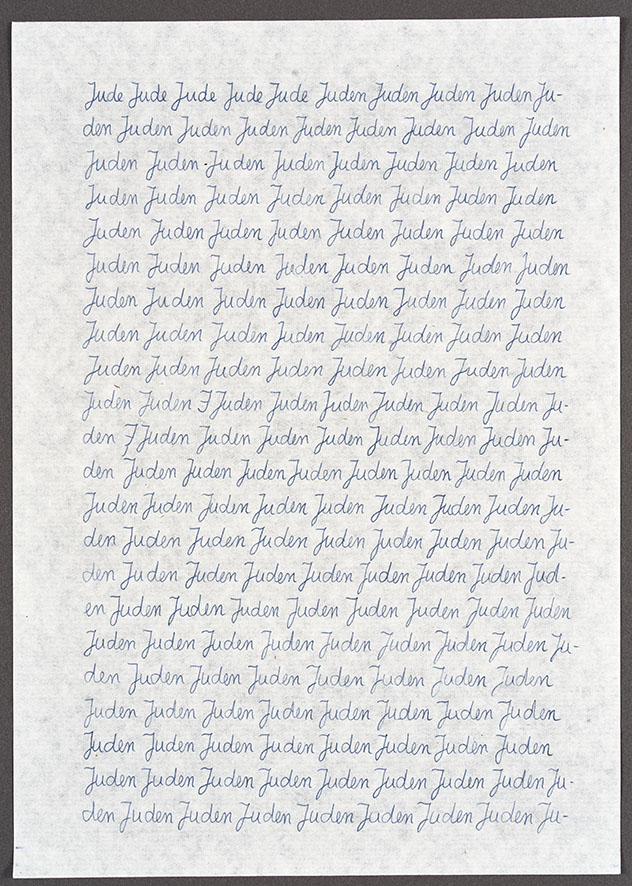 Jude Jude Jude Jude Jude Juden Juden Juden Juden Ju-
den Juden Juden Juden Juden Juden Juden Juden Juden
Juden Juden Juden Juden Juden Juden Juden Juden
Juden Juden Juden Juden Juden Juden Juden Juden
Juden Juden Juden Juden Juden Juden Juden Juden
Juden Juden Juden Juden Juden Juden Juden Juden
Juden Juden Juden Juden Juden Juden Juden Juden
Juden Juden Juden Juden Juden Juden Juden Juden
Juden Juden Juden Juden Juden Juden Juden Juden
Juden Juden J Juden Juden Juden Juden Juden Juden Ju-
den J Juden Juden Juden Juden Juden Juden Juden Ju-
den Juden Juden Juden Juden Juden Juden Juden Juden
Juden Juden Juden Juden Juden Juden Juden Juden Ju-
den Juden Juden Juden Juden Juden Juden Juden Ju-
den Juden Juden Juden Juden Juden Juden Juden Jud-
en Juden Juden Juden Juden Juden Juden Juden Juden
Juden Juden Juden Juden Juden Juden Juden Juden Ju-
den Juden Juden Juden Juden Juden Juden Juden
Juden Juden Juden Juden Juden Juden Juden Juden
Juden Juden Juden Juden Juden Juden Juden Juden
Juden Juden Juden Juden Juden Juden Juden Juden Ju-
den Juden Juden Juden Juden Juden Juden Juden Ju-